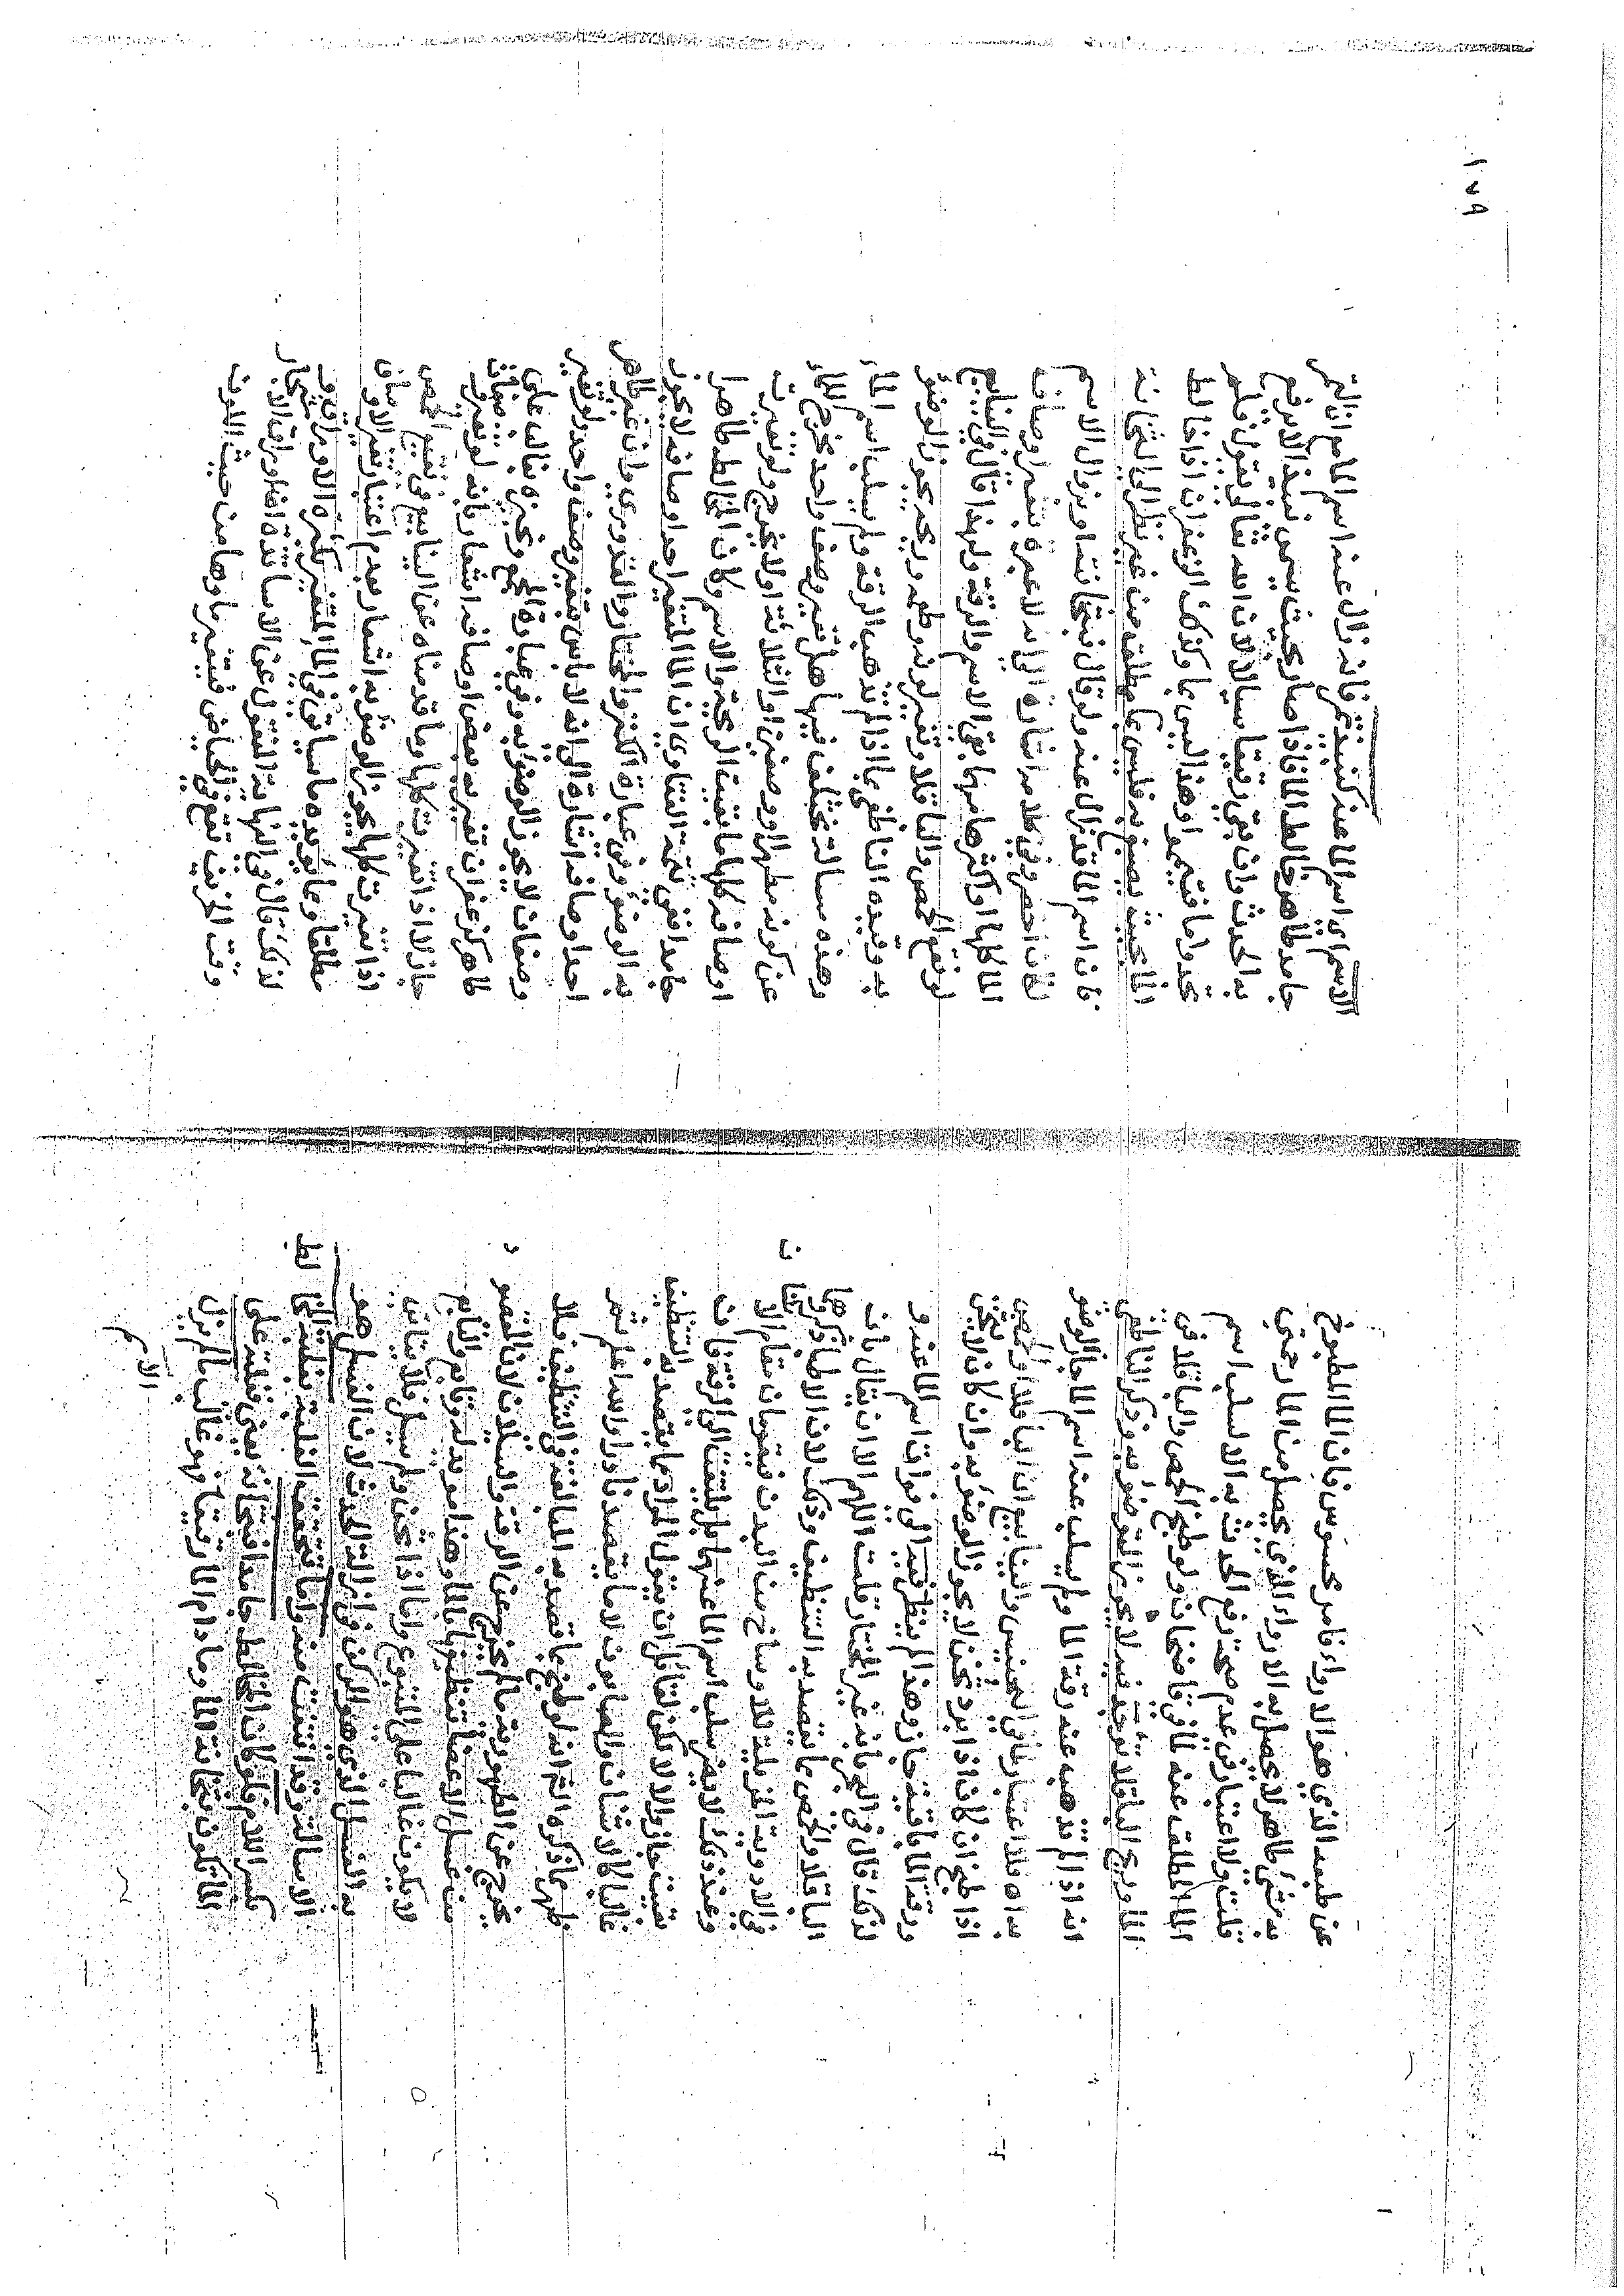 عن طبعه الذي هو الارواء فامر محسوس فان الماء المطبوخ
به شيء طاهر لا يحصل به الارواء الذي يحصل من الماء
قلت ولا اعتبار في عدم صحة رفع الحدث به الا سلب اسم
الماء المطلق عنه لما في قاضيخان ولو طبخ الحمص والباقلا في
الماء وريح الباقلا توجد فيه لا يجوز التوضؤ به وذكر الناطفي
انه اذا لم تذهب عنه رقة الماء ولم يسلب عنه اسم الماء جاز الوضو
به اه فلا اعتبار لما في التجنيس والينابيع ان الباقلا والحمص
اذا طبخ ان كان اذا برد ثخن لا يجوز الوضوء به وان كان لا يثخن
ورقة الماء باقية جاز وهذا لم ينظر فيه الى فوات اسم الماء عنه و
لذلك قال في البحر بانه غير المختار قلت اللهم الا ان يقال بان
الباقلا والحمص مما يقصد به التنظيف وذلك لان الاطبا ذكروهما
في الادوية المزيلة للاوساخ من البدن فيقومان مقام الا
وعند ذلك لا يضر سلب اسم الماء عنهما بل يلتفت الى الرقة فان
بقيت جاز والا لا لكن لقائل ان يقول المراد بما يقصد به التنظيف
غالبا كالاشنان والصابون لا ما يقصد نادرا والله اعلم ثم
ظهر مما ذكره انه لو طبخ بما قصد به المبالغة في التنظيف فلا
يخرج عن الطهورية ما لم يخرج عن الرقة والسيلان لان المقصو
من غسل الاعضا تنظيفها بالماء وهذا مويد له وتابع والتابع
لا يكون غالبا على المتبوع واما اذا ثخن ولم يسل فلا يتاتى
به الغسل الذي هو الركن في ازالة الحدث لان الغسل هو
الاسالة وقد انتفت منه واما تتحقق الغلبة بغلبة المخالط
بكسر اللام فلو كان المخالط جامدا فبثخانة يعني فغلبته على
الماء تكون بثخانة الماء وما دام الماء رقيقا فهو غالب ما لم يزل
الاسم
١٧٩
الاسم اي اسم الماء عنه كنبيذ تمر فانه زال عنه اسم الماء
جامد طاهر خالط الماء فاذا صار بحيث يسمى نبيذا لا يرفع
به الحدث وان بقي رقيقا سيالا لان الله تعالى يقول فلم
تجدوا ماء فتيمموا وهذا ليس بماء وكذلك الزعفران اذا خالط
الماء بحيث يصبغ به فليس بماء مطلق من غير نظر الى الثخانة
فان اسم الماء قد زال عنه ولو قال فبثخانته او بزوال الاسم
لكان اخصر وفي كلامه اشارة الى انه لا عبرة بتغير اوصاف
الماء كلها او اكثرها مهما بقي الاسم والرقة ولهذا قال في الينابيع
لو نقع الحمص والباقلا وتغير لونه وطعمه وريحه يجوز الوضوء
به وقيده الناطفي بما اذا لم تذهب الرقة ولم يسلب اسم الماء
وهذه مسالة تختلف فيها هل تغير وصف واحد يخرج الماء
عن كونه مطهرا او وصفين او الثلاثة او لا يخرج ولو تغيرت
اوصافه كلها ما بقيت الرقة والاسم وكان المخالط طاهرا
جامدا ففي تتمة الفتاوي ان الماء المتغير احد اوصافه لا يجوز
به الوضوء وفي عبارة الكنز والمختار والقدوري وان غير طاهر
احد اوصافه اشارة الى انه لا باس بتغير وصف واحد ولو تغير
وصفان لا يجوز الوضوء به وفي عبارة المجمع ونجيزه بغالب على
طاهر كزعفران تغير به بعض اوصافه اشعار بانه لو تغير وصفان
جاز لا اذا تغيرت كلها وما قدمناه عن الينابيع في نقيع الحمص
اذا تغيرت كلها يجوز الوضوء به اشعار بعدم اعتبار تغير الاوصاف
مطلقا ومما يؤيده ما سياتي في الماء المتغير بكثرة الاوراق
لذلك قال في النهاية المنقول عن الاساتذة ان اوراق الاشجار
وقت الخريف تقع في الحياض فيتغير ماوها من حيث اللون